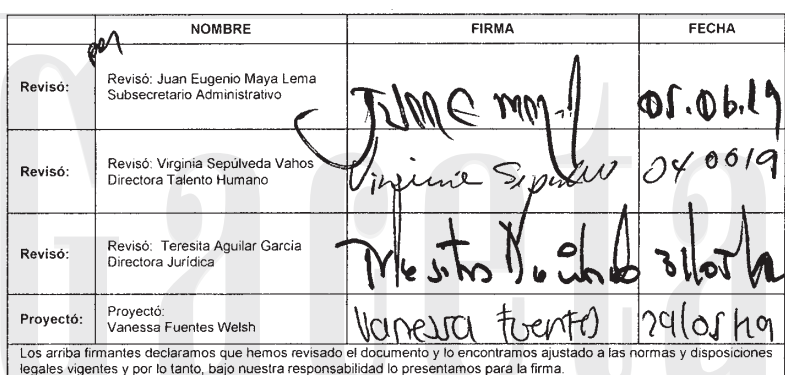 NOMBRE FIRMA FECHA
Revisó: Revisó: Juan Eugenio Maya Lema
Subsecretario Administrativo
05.06.19
Revisó: Revisó: Virginia Sepúlveda Vahos
Directora Talento Humano
Virginia Sepúlveda 04 06 19
Revisó: Revisó: Teresita Aguilar Garcia
Directora Jurídica
31/05/19
Proyectó: Proyectó:
Vanessa Fuentes Welsh
Vanessa Fuentes 29/05/19
Los arriba firmantes declaramos que hemos revisado el documento y lo encontramos ajustado a las normas y disposiciones
legales vigentes y por lo tanto, bajo nuestra responsabilidad lo presentamos para la firma.